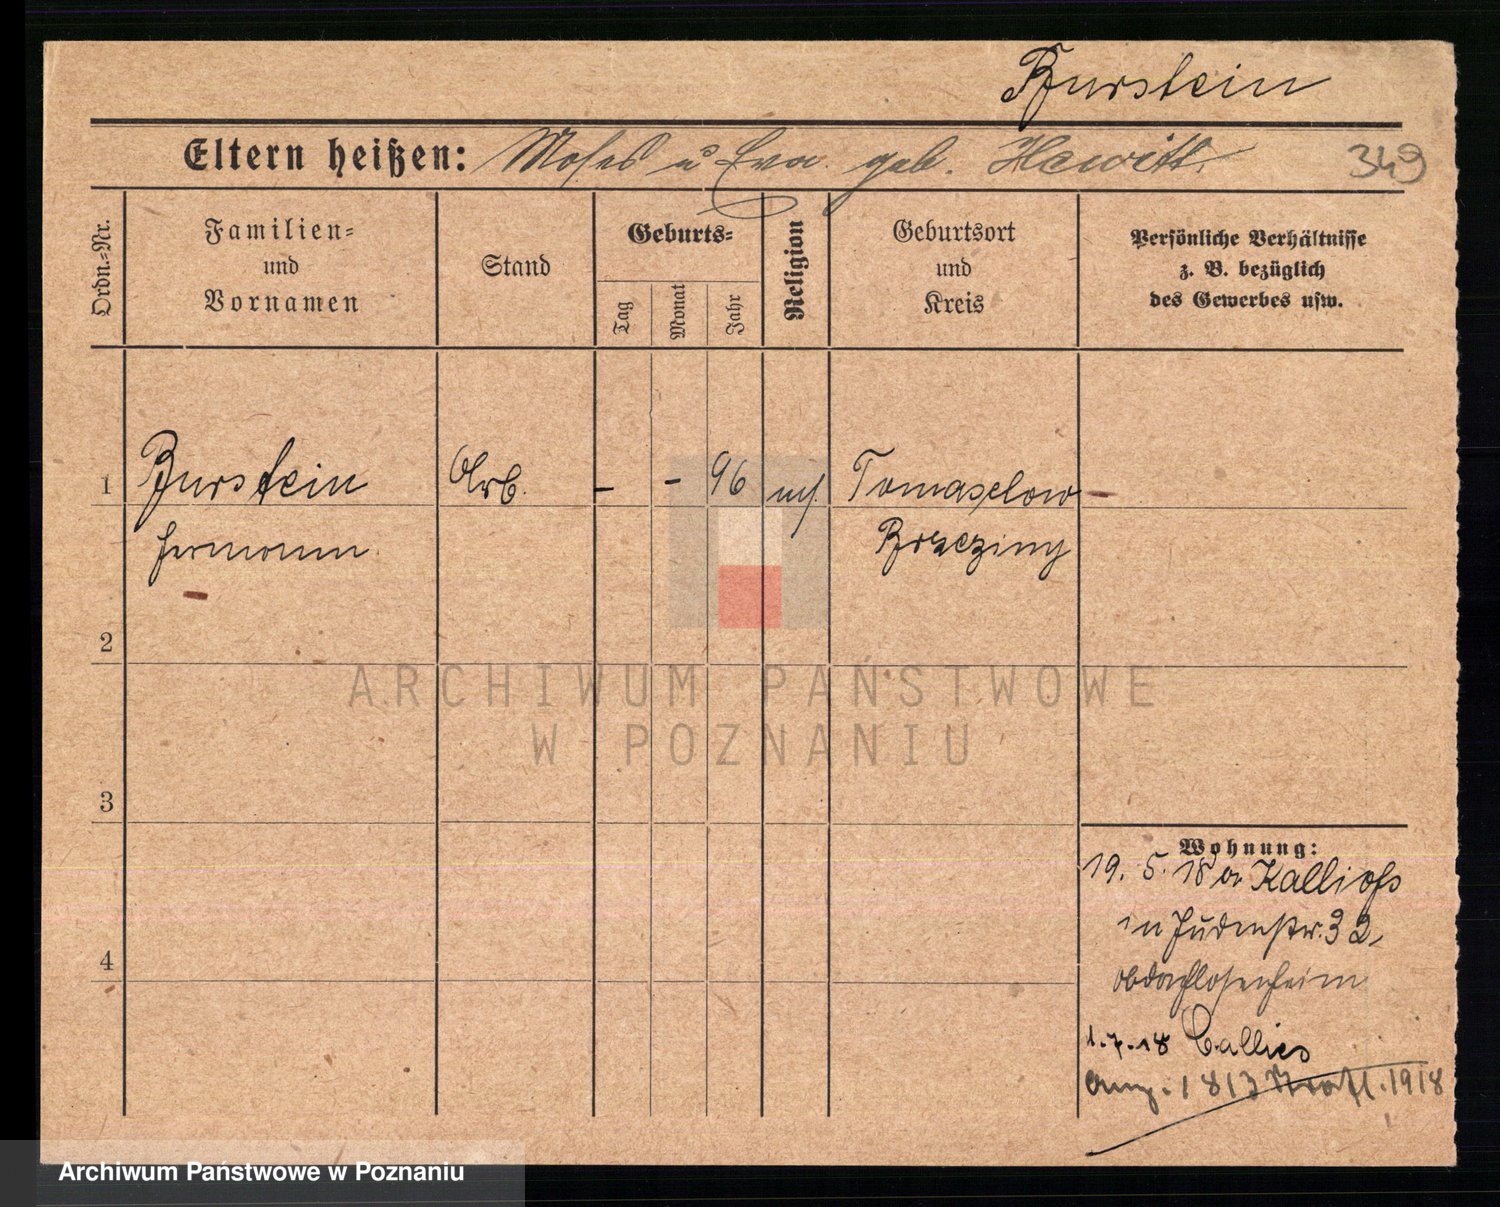 Burstein
Eltern heißen: Moses u Eva geb. Hewitt
349
Ordn.-Nr.
Familien-
und
Vornamen
Stand
Geburts-
Tag
Monat
Jahr
Religion
Geburtsort
und
Kreis
Persönliche Verhältnisse
z. B. bezüglich
des Gewerbes usw.
1 Burstein Arb. - - 96 Tomaschow -
Hermann Brzeziny
2
3
4
Wohnung:
19. 5. 18 a. Kallies
in Judenstr. 32,
Obdachlosenheim
1.7.18 Callies
1813 1918
ARCHIWUM PAŃSTWOWE
W POZNANIU
Archiwum Państwowe w Poznaniu